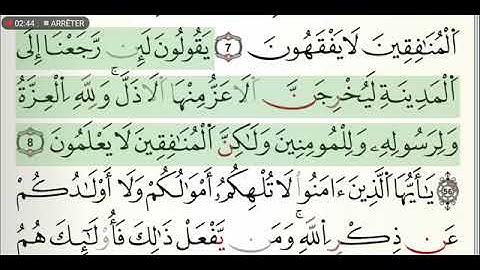 02:44 ■ ARRÊTER
اَ۬لْمُنَٰفِقِينَ لَا يَفْقَهُونَ 7 يَقُولُونَ لَئِن رَّجَعْنَا إِلَى
اَ۬لْمَدِينَةِ لَيُخْرِجَنَّ اَ۬لَاعَزُّ مِنْهَا اَ۬لَاذَلَّۖ وَلِلهِ اِ۬لْعِزَّةُ
وَلِرَسُولِهِۦ وَلِلْمُومِنِينَ وَلَٰكِنَّ اَ۬لْمُنَٰفِقِينَ لَا يَعْلَمُونَ 8
يَٰٓأَيُّهَا اَ۬لذِينَ ءَامَنُواْ لَا تُلْهِكُمُۥٓ أَمْوَٰلُكُمْ وَلَآ أَوْلَٰدُكُمْ
عَن ذِكْرِ اِ۬للَّهِۖ وَمَنْ يَّفْعَلْ ذَٰلِكَ فَأُوْلَٰٓئِكَ هُمُ